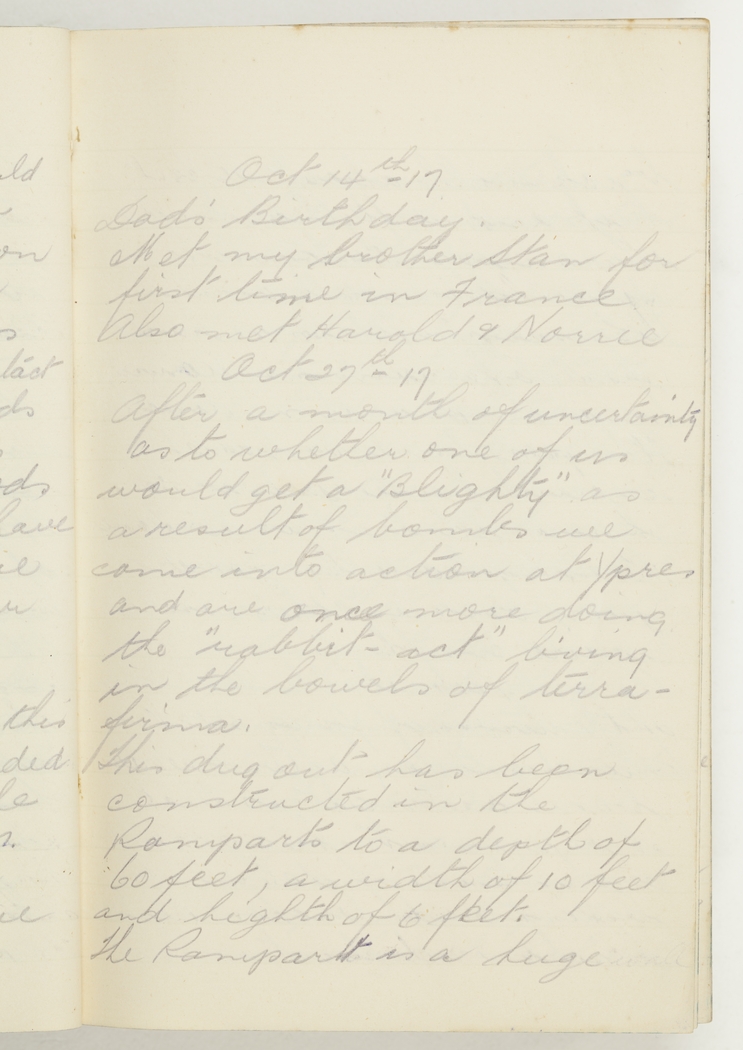 Oct 14th-17
Dad's Birthday.
Met my brother Stan for
first time in France
Also met Harold & Norrie
Oct 27th-17
After a month of uncertainty
as to whether one of us
would get a "Blighty" as
a result of bombs we
come into action at Ypres
and are once more doing
the "rabbit-act" living
in the bowels of terra-
firma.
This dug out has been
constructed in the
Ramparts to a depth of
60 feet, a width of 10 feet
and highth of 6 feet.
The Rampart is a huge
ld
on
s
tact
ds
ods
lave
ie
u
this
ded
le
n.
ue